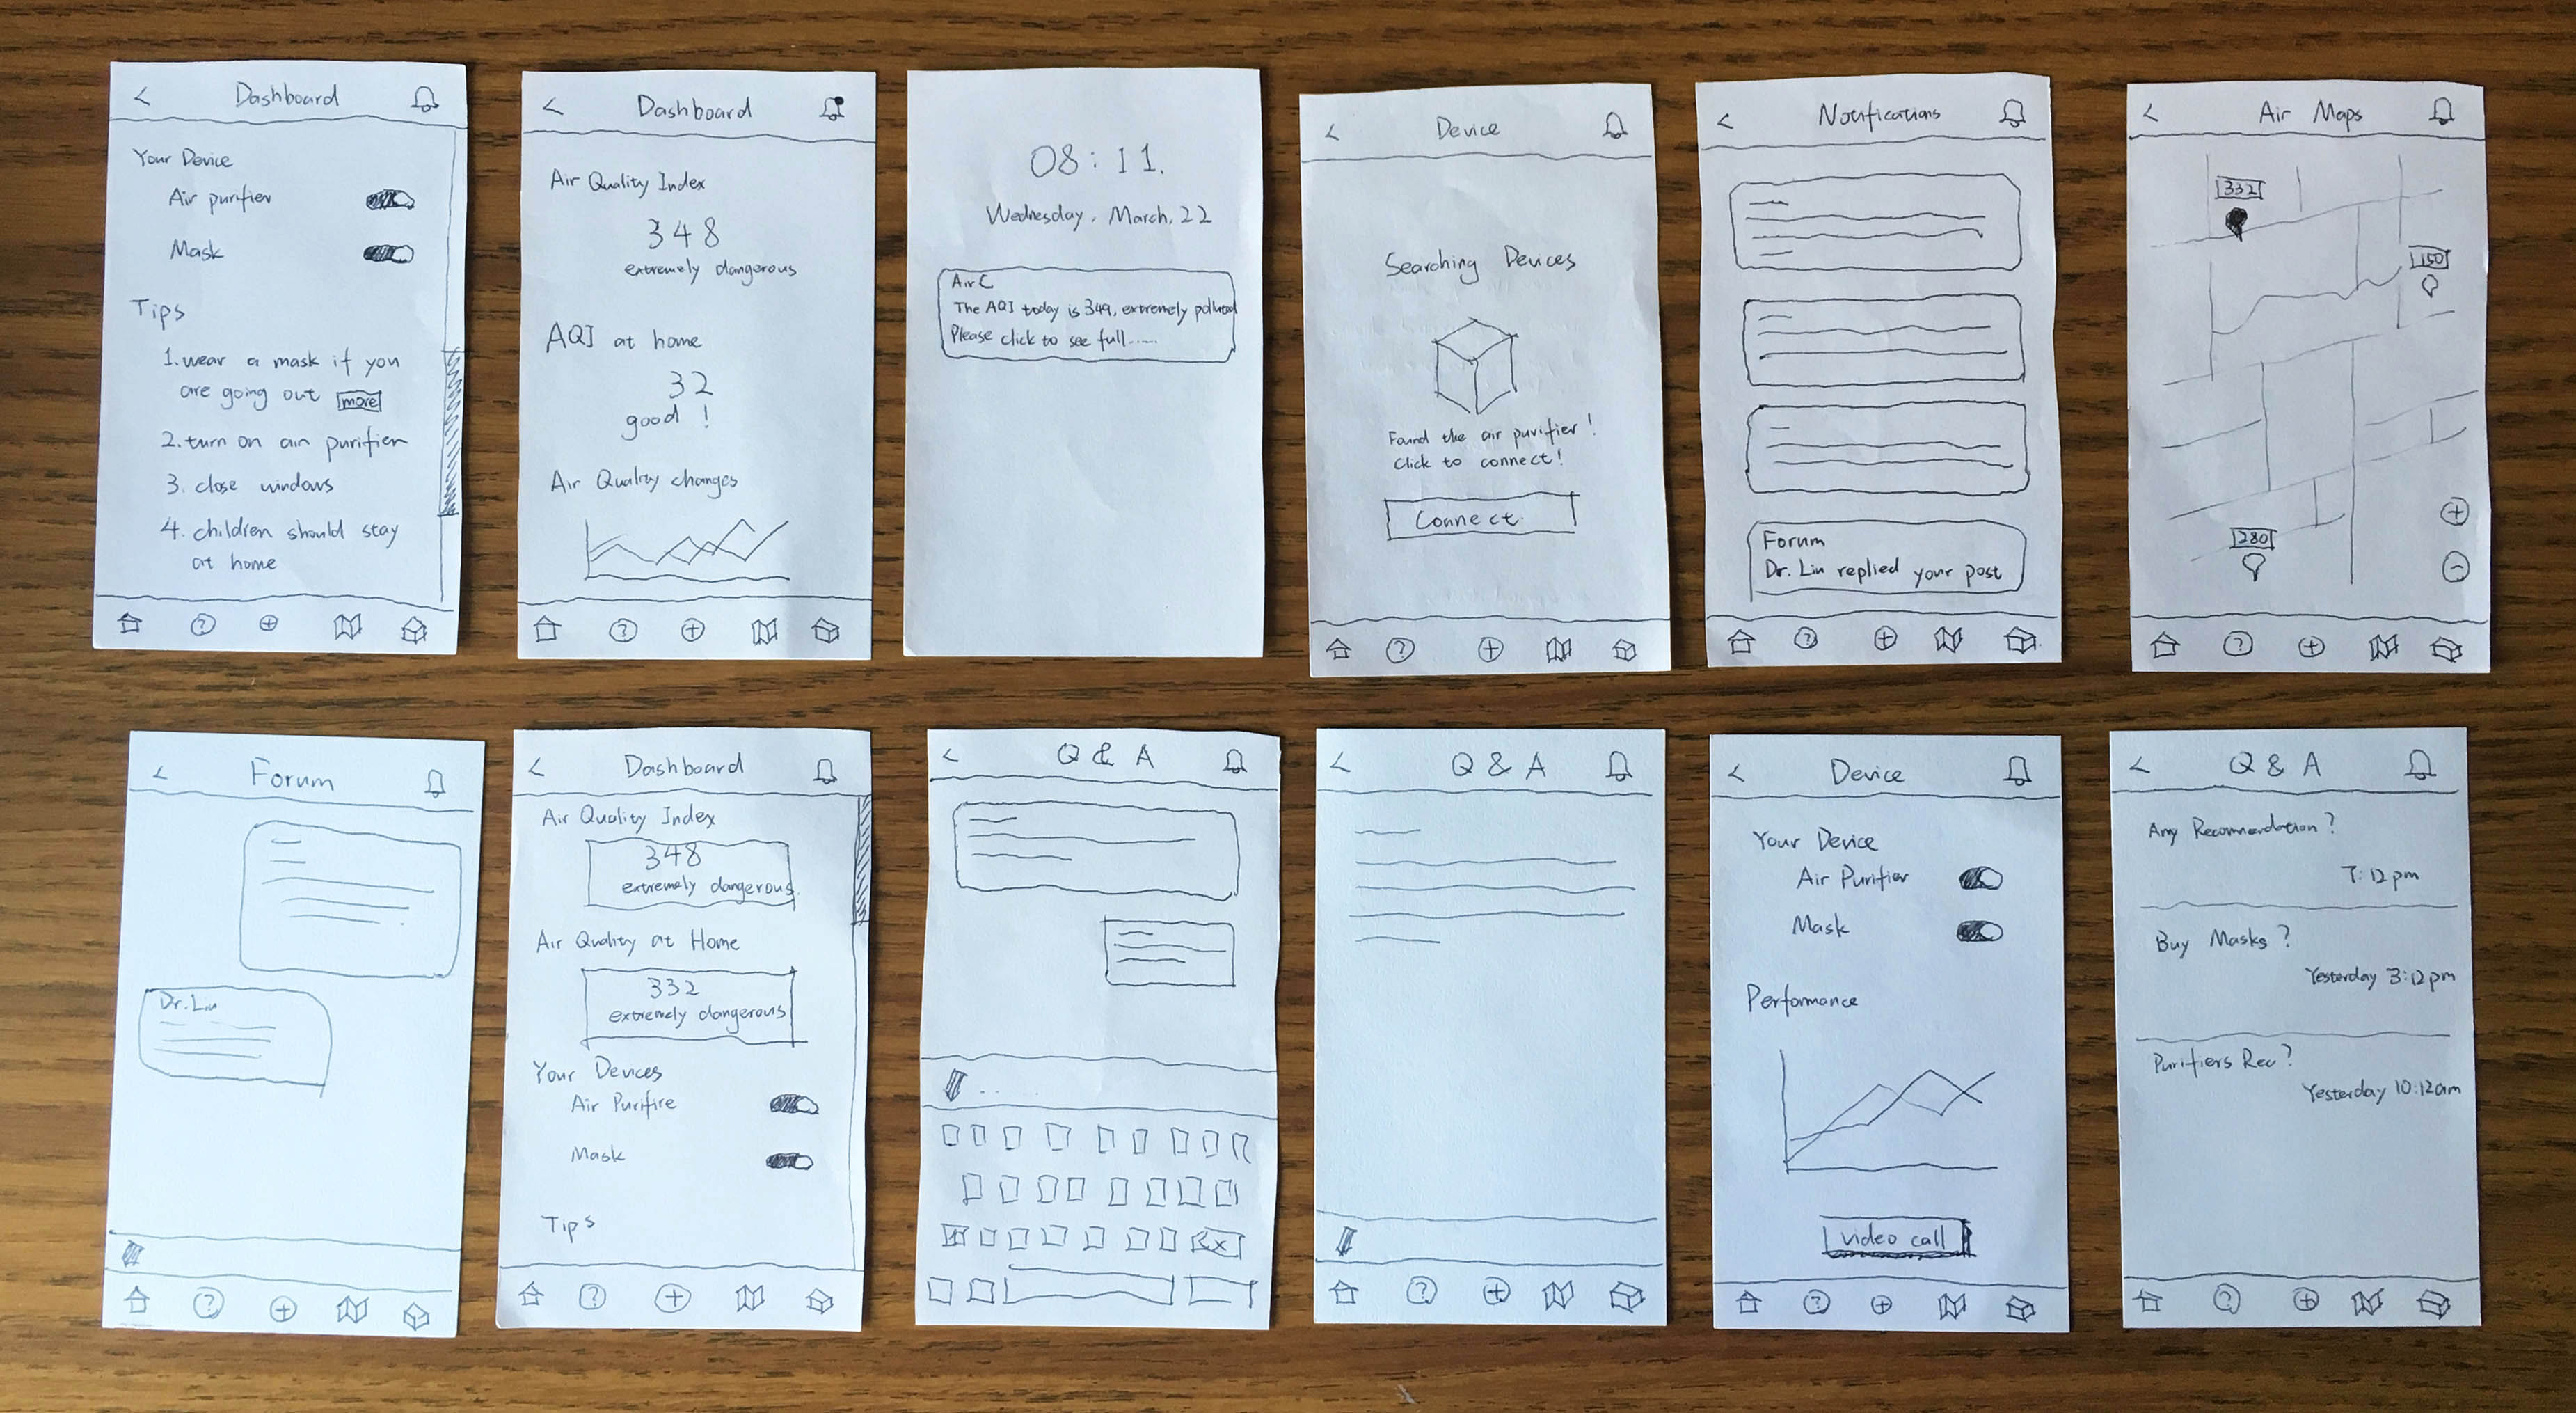 Dashboard
Your Device
Air purifier
Mask
Tips
1. wear a mask if you
are going out more
2. turn on air purifier
3. close windows
4. children should stay
at home
Dashboard
Air Quality Index
348
extremely dangerous
AQI at home
32
good !
Air Quality changes
08 : 11.
Wednesday, March, 22
AirC
The AQI today is 349, extremely polluted
Please click to see full......
Device
Searching Devices
Found the air purifier !
Click to connect !
Connect
Notifications
Forum
Dr. Liu replied your post
Air Maps
332
150
280
Forum
Dr. Liu
Dashboard
Air Quality Index
348
extremely dangerous
Air Quality at Home
332
extremely dangerous
Your Devices
Air Purifire
Mask
Tips
Q & A
Q & A
Device
Your Device
Air Purifier
Mask
Performance
video call
Q & A
Any Recommendation ?
7:12pm
Buy Masks ?
Yesterday 3:12pm
Purifiers Rec ?
Yesterday 10:12am